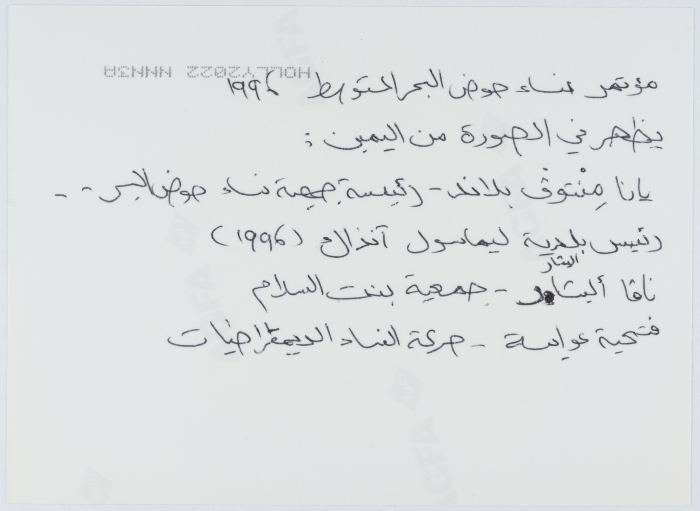 HOLLY2022 NNN3A
مؤتمر نساء حوض البحر المتوسط ١٩٩٦
يظهر في الصورة من اليمين :
يانا مِنْتوڤ بلاند - رئيسة جمعية نساء حوض البحر - -
رئيس بلدية ليماسول آنذاك (١٩٩٦)
البشار
ناڤا - جمعية بنت السلام
فتحية عواسة - حركة النساء الديمقراطيات
AGFA
AGFA
AGFA